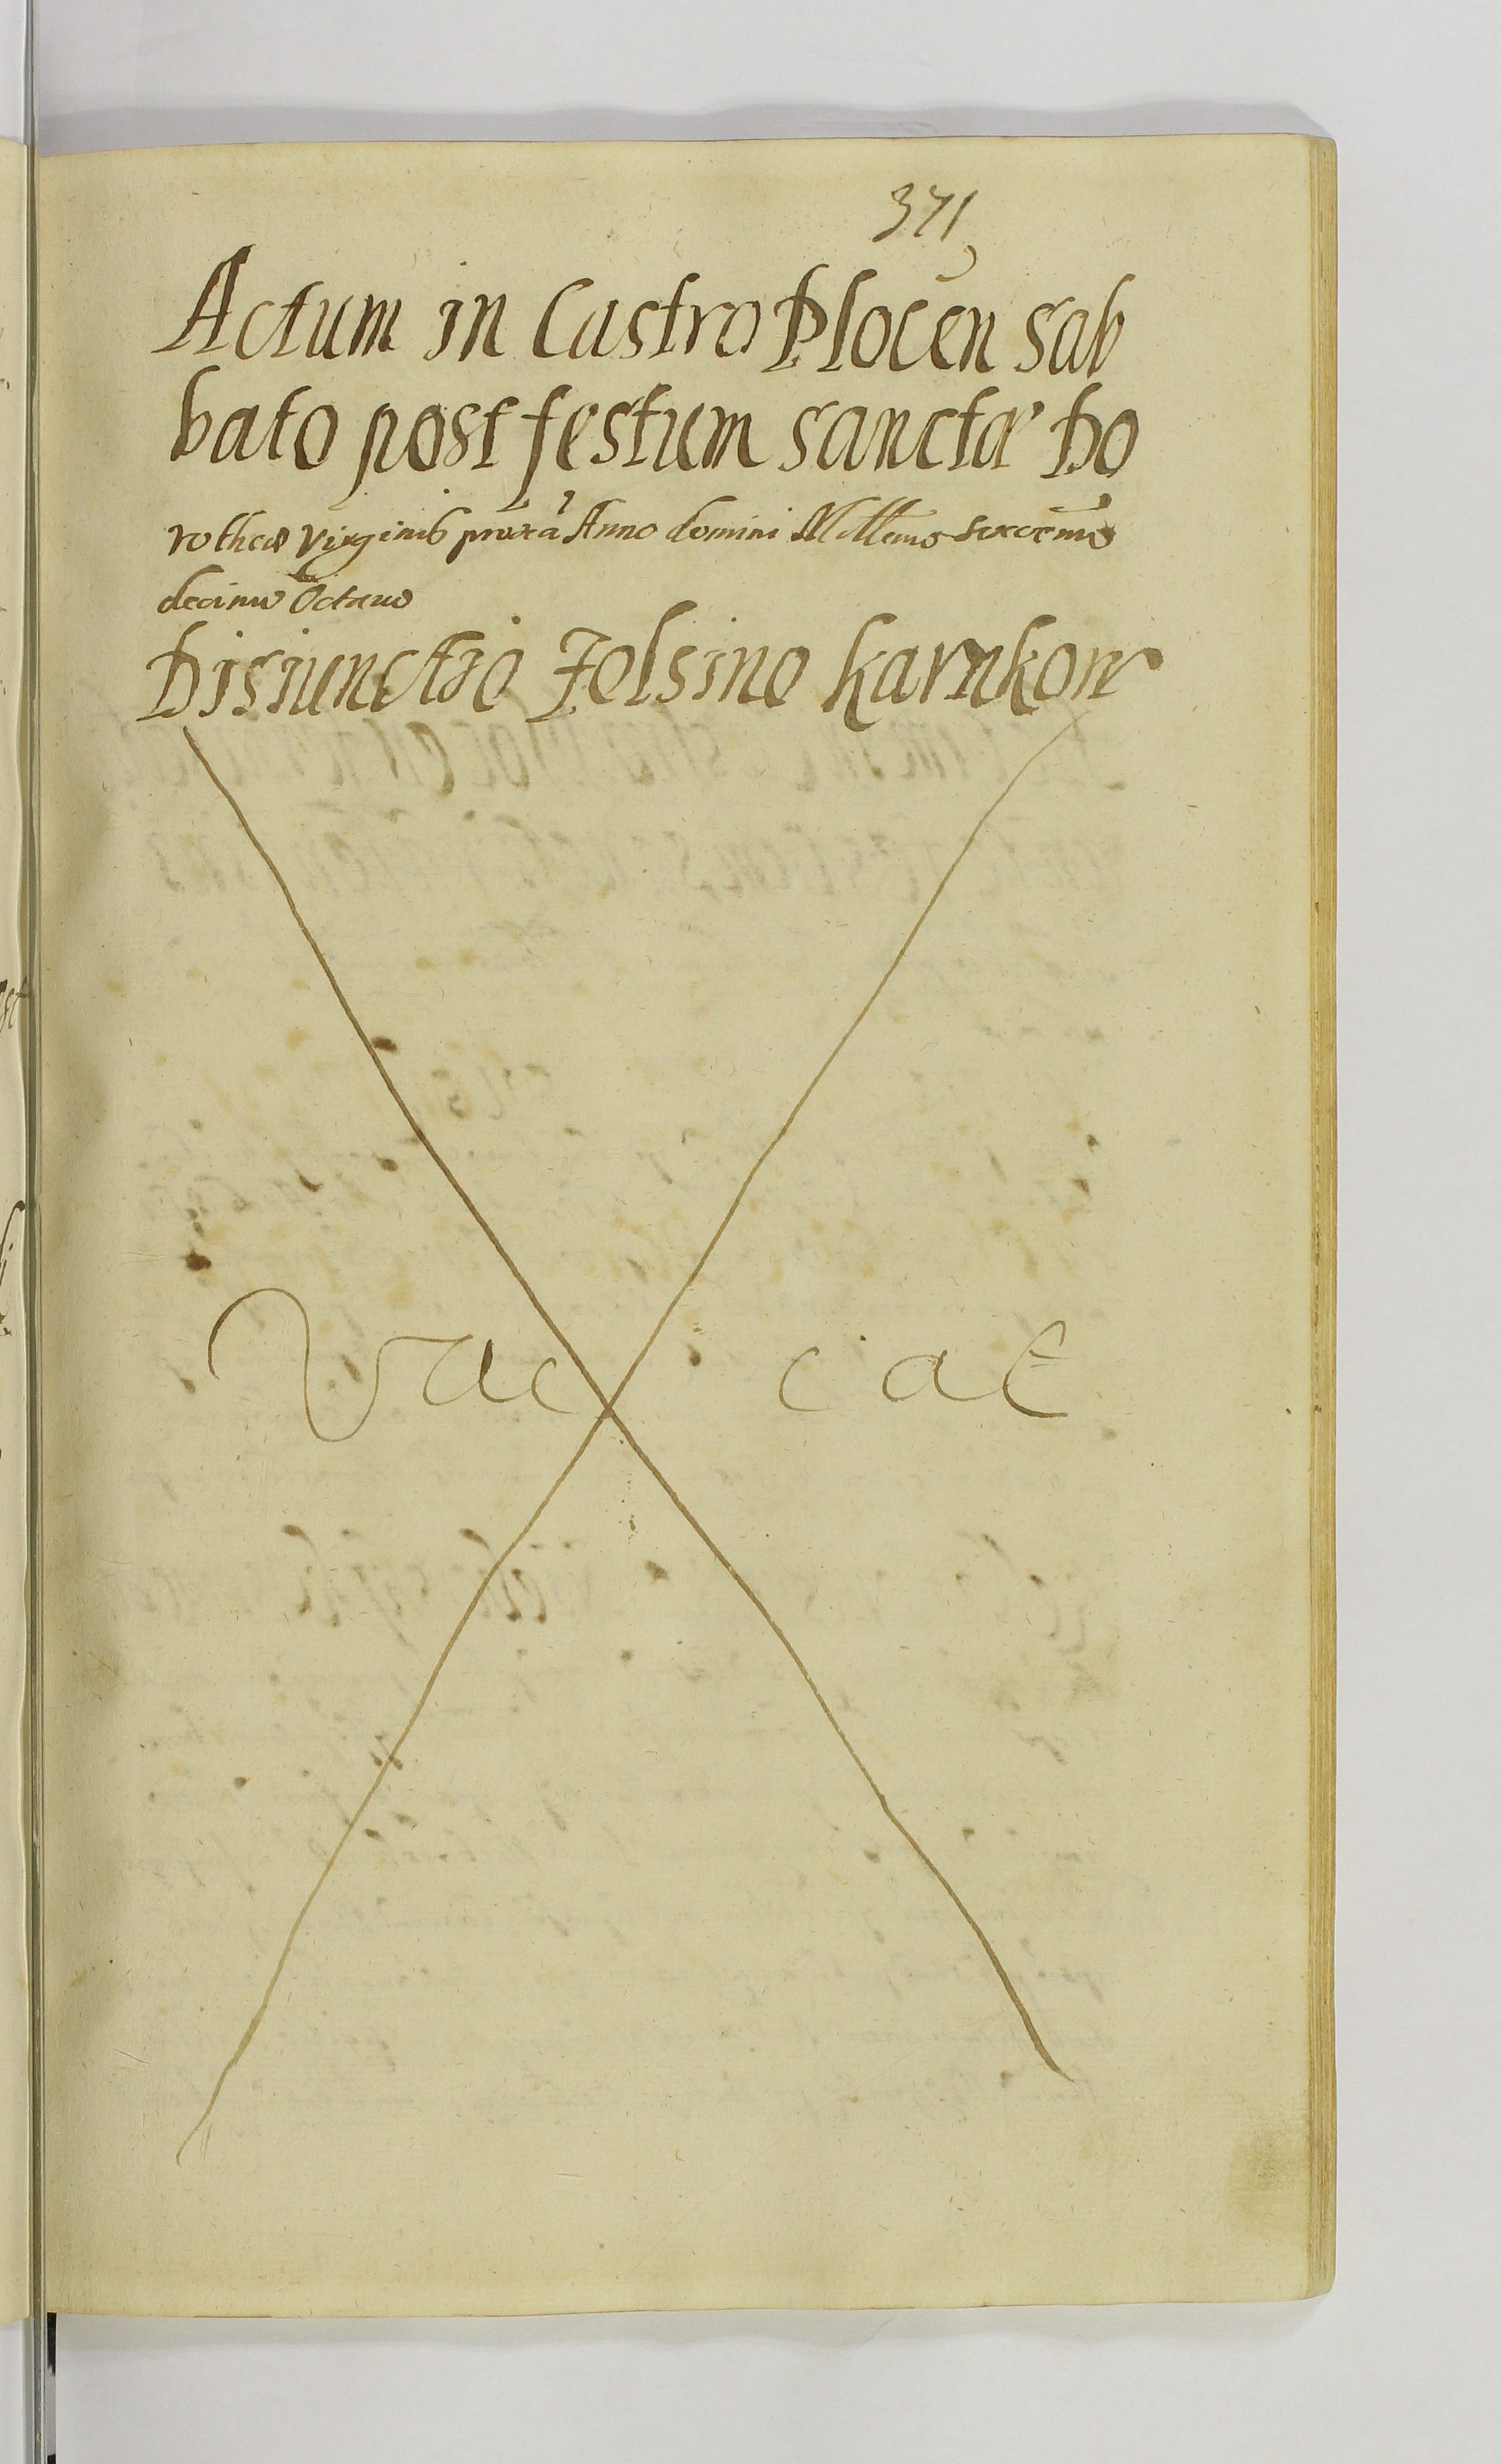 371
Actum in Castro Plocen̄ sab
bato post festum sanctæ Do
rotheæ Virginis proxā Anno domini Millmo sexcenmo
decimo Octauo
Disiunctio Jolsino Karnkow
Vac cat